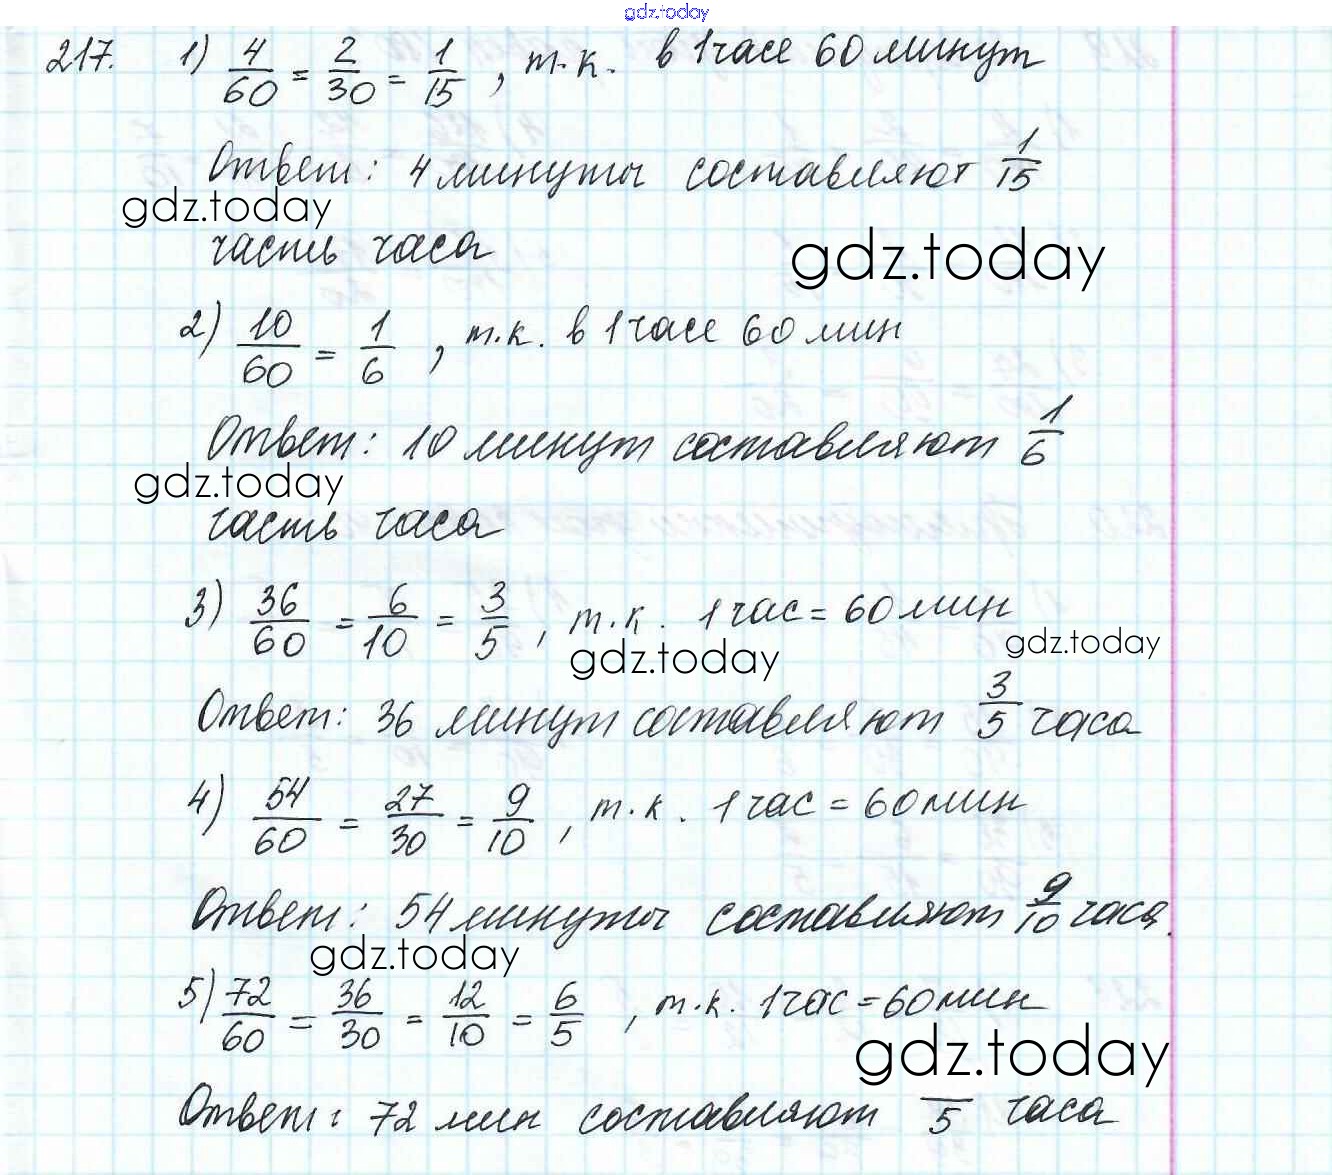 gdz.today
217. 1) 4/60 = 2/30 = 1/15, т.к. в 1 часе 60 минут
Ответ: 4 минуты составляют 1/15
gdz.today
часть часа
gdz.today
2) 10/60 = 1/6, т.к. в 1 часе 60 мин
Ответ: 10 минут составляют 1/6
gdz.today
часть часа
3) 36/60 = 6/10 = 3/5, т.к. 1 час = 60 мин
gdz.today
gdz.today
Ответ: 36 минут составляют 3/5 часа
4) 54/60 = 27/30 = 9/10, т.к. 1 час = 60 мин
Ответ: 54 минуты составляют 9/10 часа.
gdz.today
5) 72/60 = 36/30 = 12/10 = 6/5, т.к. 1 час = 60 мин
gdz.today
Ответ: 72 мин составляют /5 часа